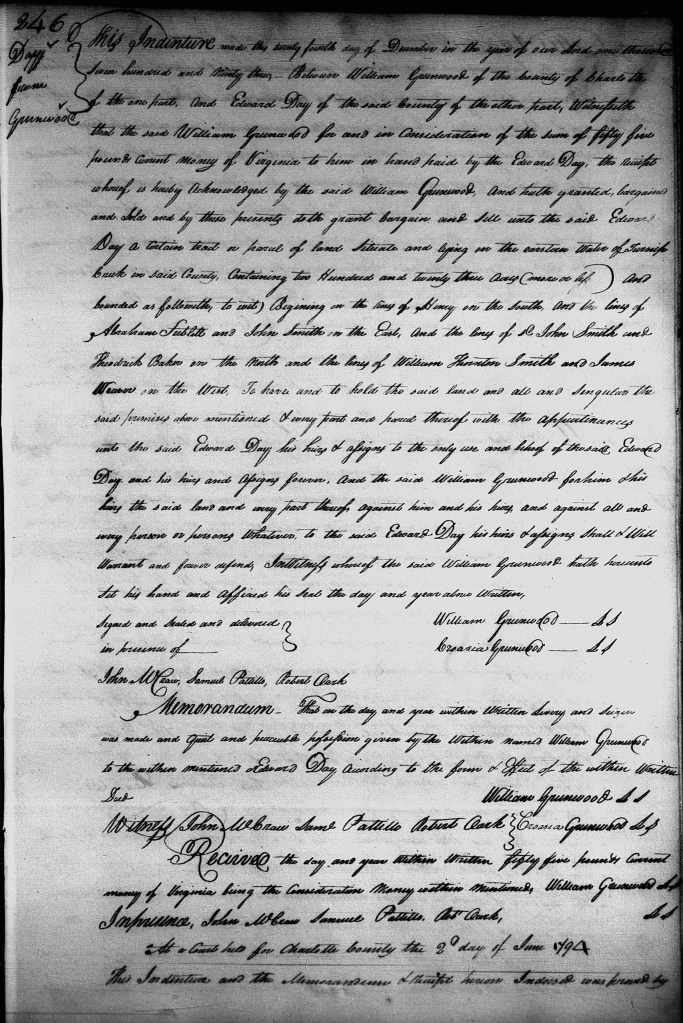 246
Day
from
Greenwood
This Indenture made this twenty fourth day of December in the year of our Lord one thousand
seven hundred and Ninety three Between William Greenwood of the County of Charlotte
of the one part, And Edward Day of the said County of the other part, Witnesseth
that the said William Greenwood for and in Consideration of the sum of fifty five
pounds Current money of Virginia to him in hand paid by the Edward Day, the receipt
whereof, is hereby Acknowledged by the said William Greenwood, And hath granted, bargained
and Sold and by these presents doth grant bargain and Sell unto the said Edward
Day a Certain tract or parcel of land Situate and lying on the eastern Water of Turnip
Creek in said County, Containing two Hundred and twenty three Acres (more or less) And
bounded as followeth, to wit) Begining on the lines of Henry on the South, And the lines of
Abraham Sublett and John Smith on the East, And the lines of John Smith and
Theodrick Baker on the North and the lines of William Thornton Smith and James
Weaver on the West, To have and to hold the said land and all and Singular the
said premises above mentioned & every part and parcel thereof with the appurtinances
unto the said Edward Day his heirs & assigns to the only use and behoof of the said, Edward
Day and his heirs and Assigns forever, And the said William Greenwood for him & his
heirs the said land and every part thereof, against him and his heirs, and against all and
every person or persons Whatever, to the said Edward Day his heirs & assigns Shall & Will
Warrant and forever defend, In Witness whereof the said William Greenwood hath hereunto
Set his hand and affixed his Seal the day and year above Written,
Signed and Sealed and delivered William Greenwood — LS
in presence of — Greenwood — LS
John McCraw, Samuel Pattillo, Robert Clark
Memorandum - That on the day and year within Written livery and Seizen
was made and Quiet and peaceable possession given by the Within named William Greenwood
to the within mentioned Edward Day According to the form & Effect of the within Written
Deed William Greenwood LS
Witness John McCraw Saml Pattillo Robert Clark Greenwood LS
Received the day and year Within Written fifty five pounds Current
money of Virginia being the Consideration Money within mentioned, William Greenwood LS
In presence, John McCraw Samuel Pattillo, Robt Clark, LS
At a Court held for Charlotte County the 2d day of June 1794
This Indenture and the Memorandum & Receipt hereon Indorsed was proved by